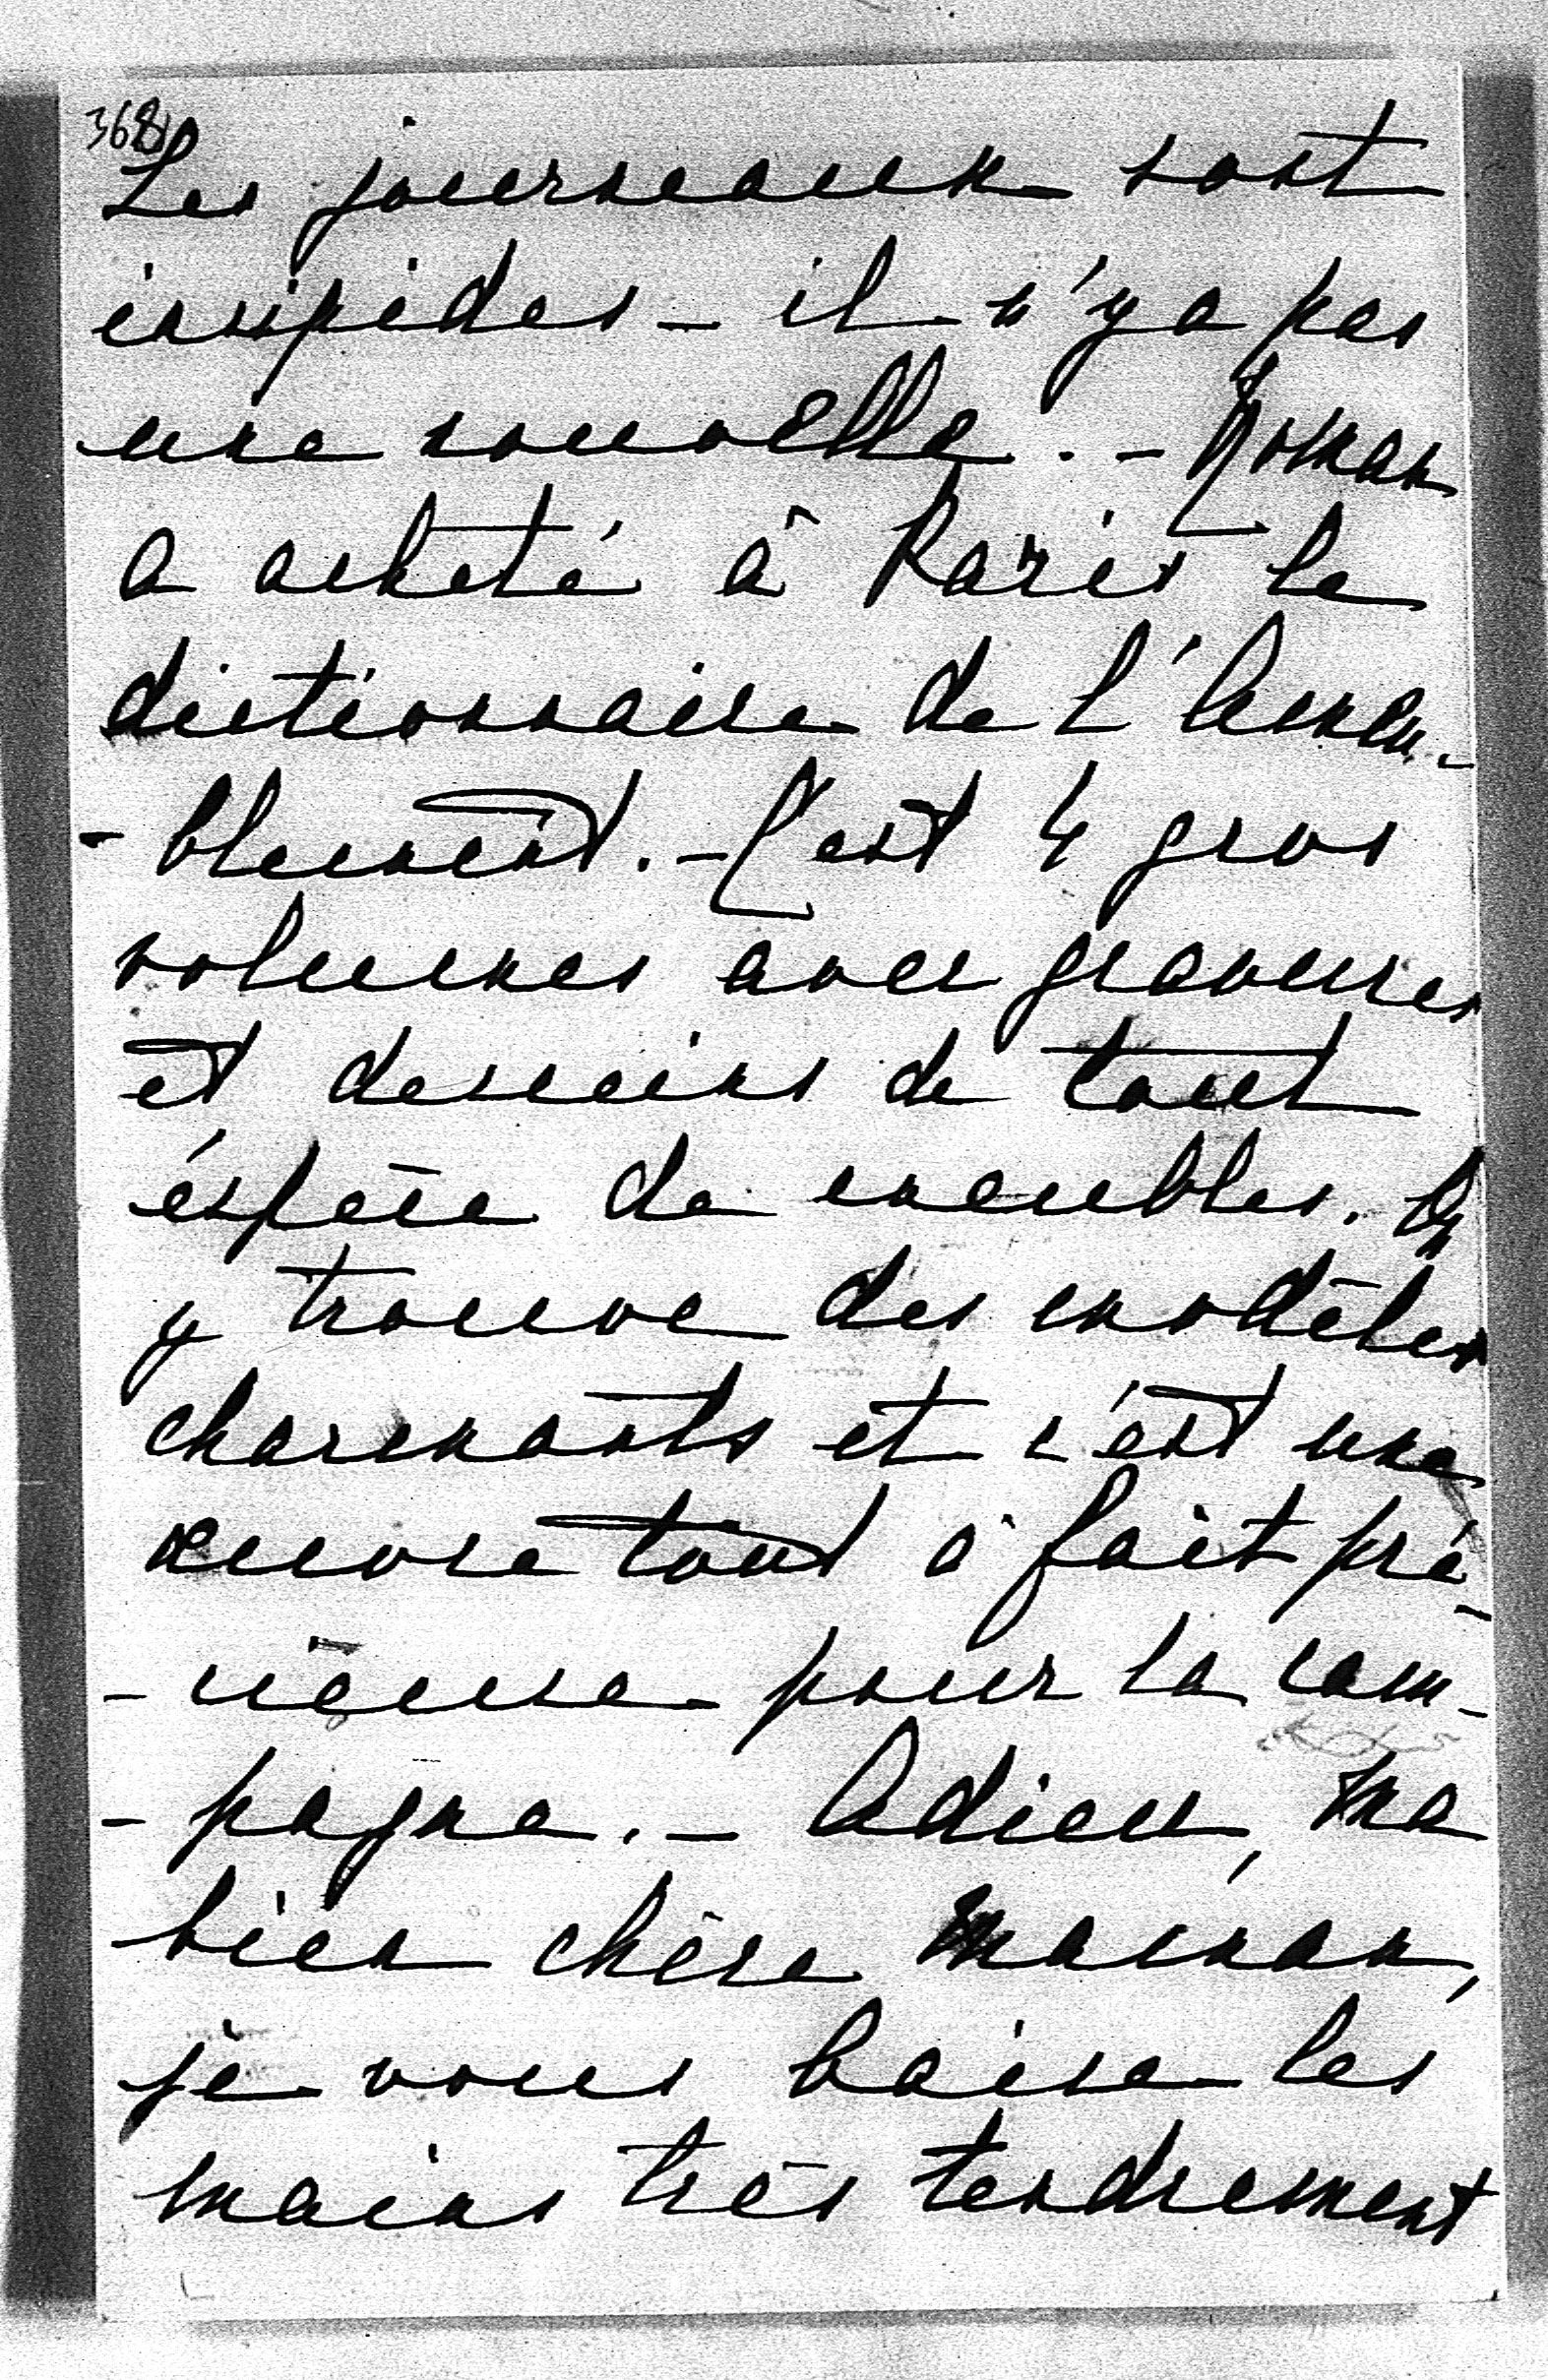 368
Les journeaux sont
insipides – il n'y a pas
une nouvelle. – Roman
a acheté à Paris le
dictionnaire de l'Ameu-
- blement. – C'est 4 gros
volumes avec gravures
et dessins de tout
éspèce de meubles. On
y trouve des modèles
charmants et c'est une
œuvre tout à fait pré-
- cieuse pour la cam-
- pagne. – Adieu, ma
bien chère maman,
je vous baise les
mains très tendrement